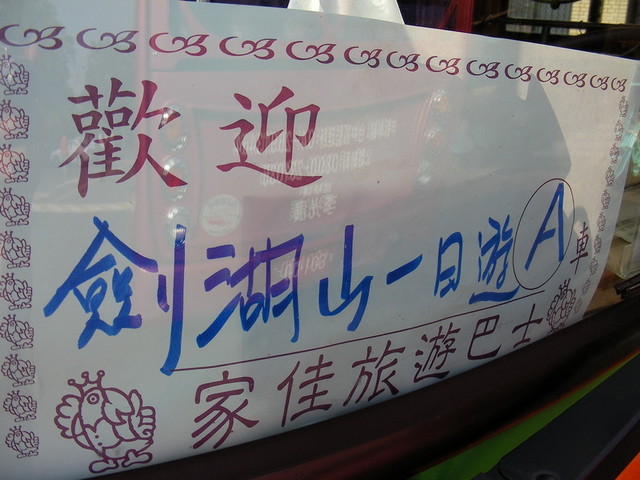 歡迎
劍湖山一日遊 A 車
家佳旅遊巴士